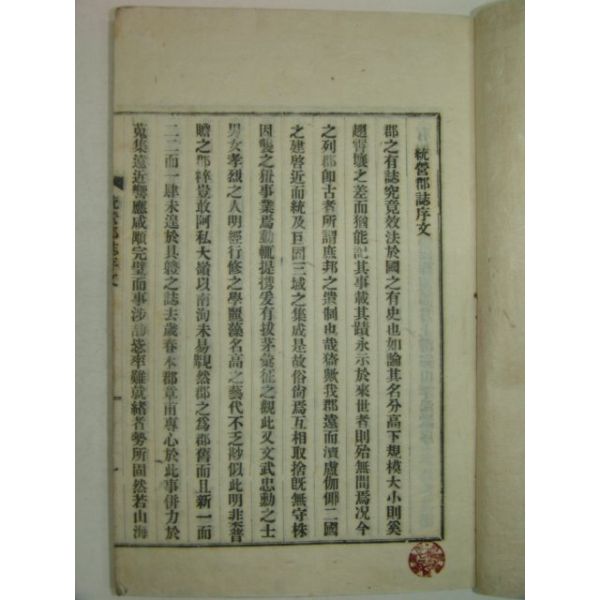 統營郡誌序文
郡之有誌究竟效法於國之有史也如論其名分高下規模大小則奚
趐霄壤之差而猶能記其事載其蹟永示於來世者則殆無間焉况今
之列郡卽古者所謂庶邦之禦制也哉猗歟我郡遠而瀆盧伽倻二國
之建啓近而統及巨固三域之集成是故俗尙焉互相取捨旣無守株
因襲之獘事業焉動輒提携爰有拔茅彙征之觀此又文武忠勳之士
男女孝烈之人明經行修之學麗藻名高之藝代不乏
似此明非
贍之郡粹豈敢阿私大嶺以南洵未易覩然郡之爲郡舊面且新一面
二二面一肆未遑於具軆之誌去歲春本郡章甫專心於此事倂力於
蒐集遠近響應咸順完璧而事涉
率雖就緖者勢所固然若山海
統營郡誌序文
一